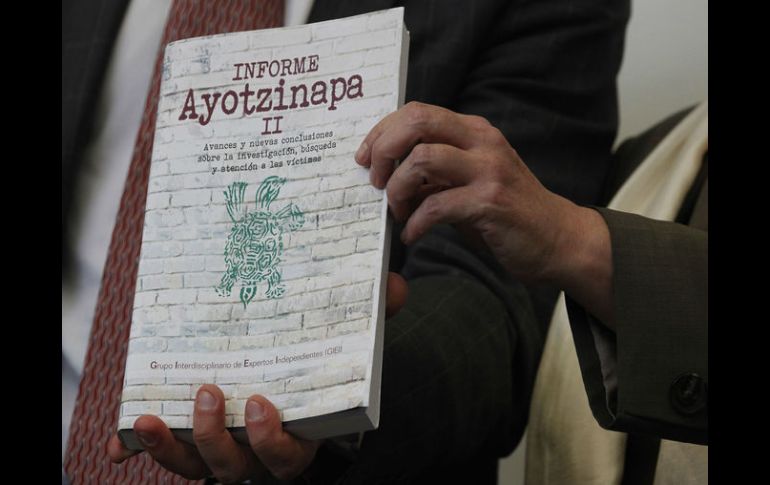 INFORME
Ayotzinapa
II
Avances y nuevas conclusiones
sobre la investigación, búsqueda
y atención a las víctimas
Grupo Interdisciplinario de Expertos Independientes (GIEI)